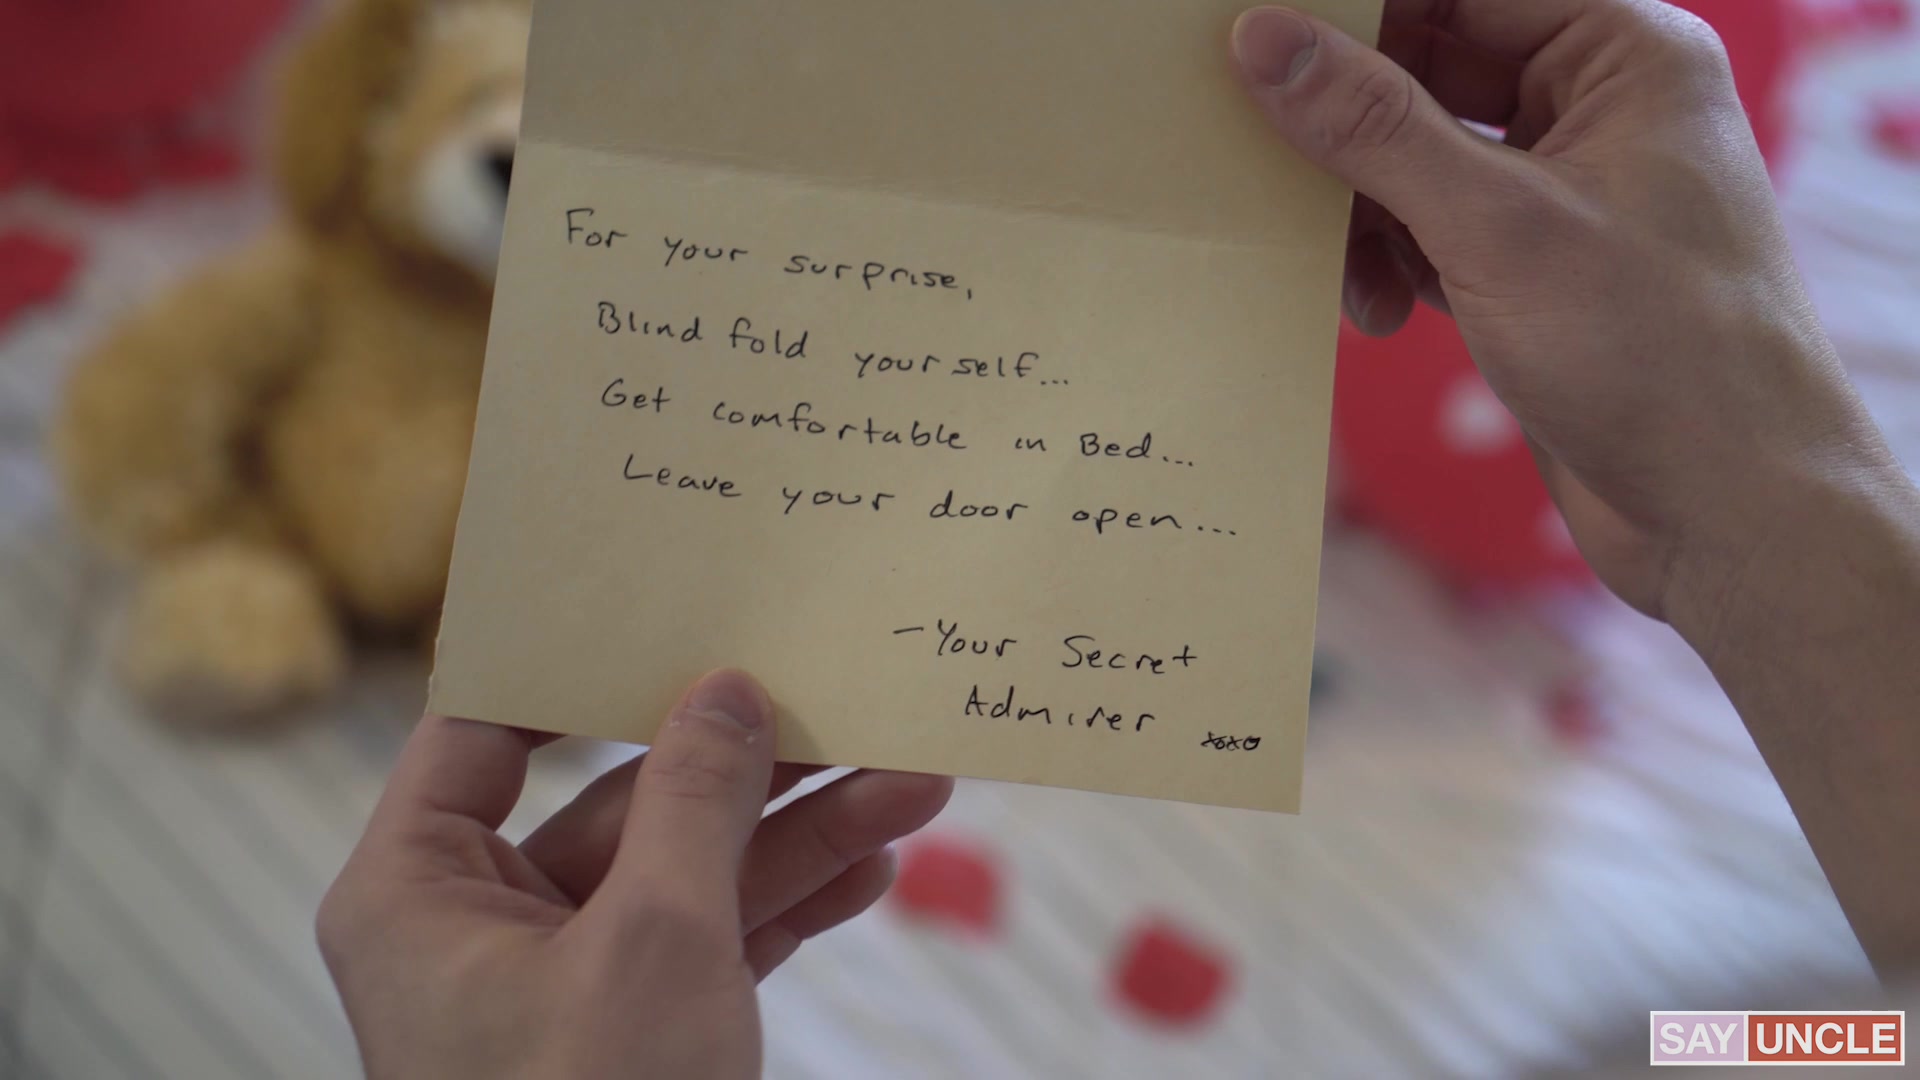 For your surprise,
Blind fold yourself...
Get comfortable in Bed...
Leave your door open...
-Your Secret
Admirer xoxo
SAY UNCLE